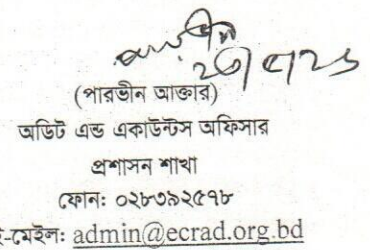 (পারভীন আক্তার)
অডিট এন্ড একাউন্টস অফিসার
প্রশাসন শাখা
ফোন: ০২৮৩৯২৫৭৮
ই-মেইল: admin@ecrad.org.bd